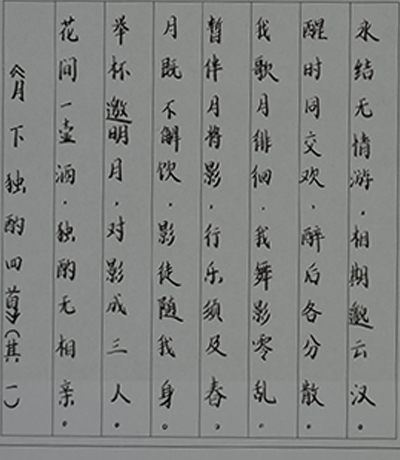 《月下独酌四首》(其一)
花间一壶酒，独酌无相亲。
举杯邀明月，对影成三人。
月既不解饮，影徒随我身。
暂伴月将影，行乐须及春。
我歌月徘徊，我舞影零乱。
醒时同交欢，醉后各分散。
永结无情游，相期邈云汉。